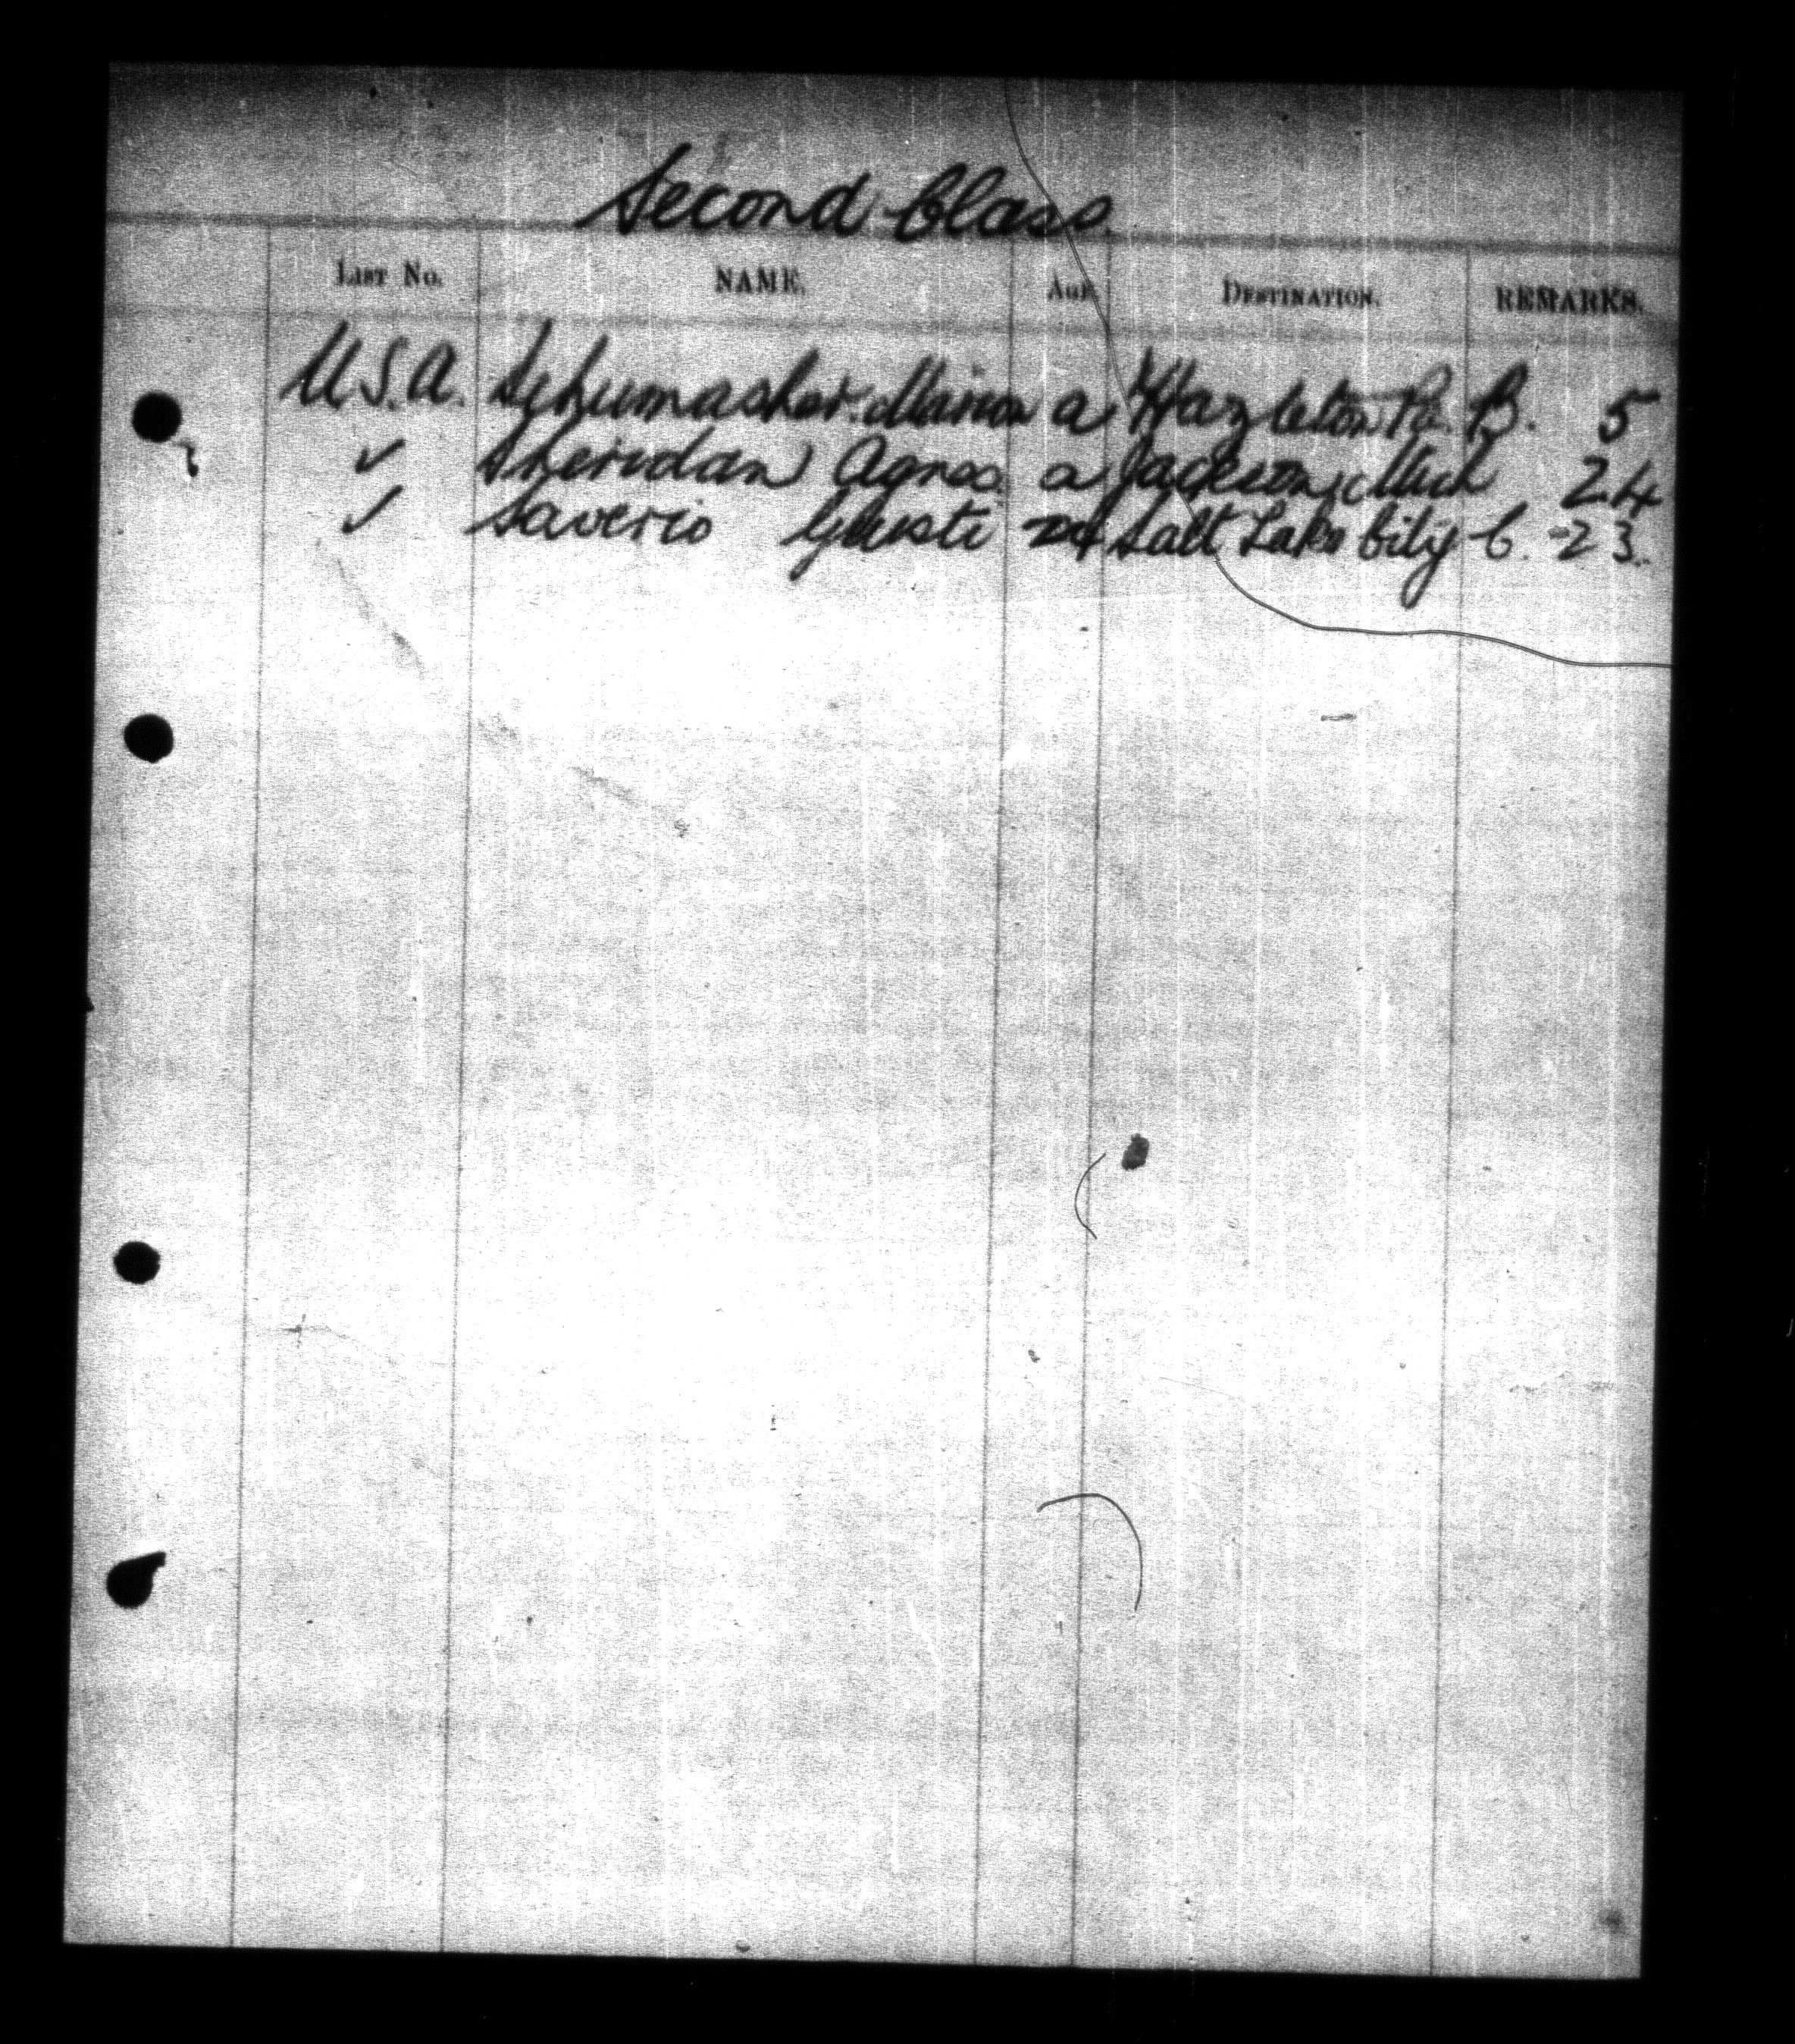 Second Class.
LIST No. NAME. AGE DESTINATION. REMARKS.
U.S.A. Schumasher. Maria a Hazleton Pa. B. 5
✓ Sheridan Agnes. a Jackson, Mich 24
✓ Saverio Giusti 24 Salt Lake City C. 23.